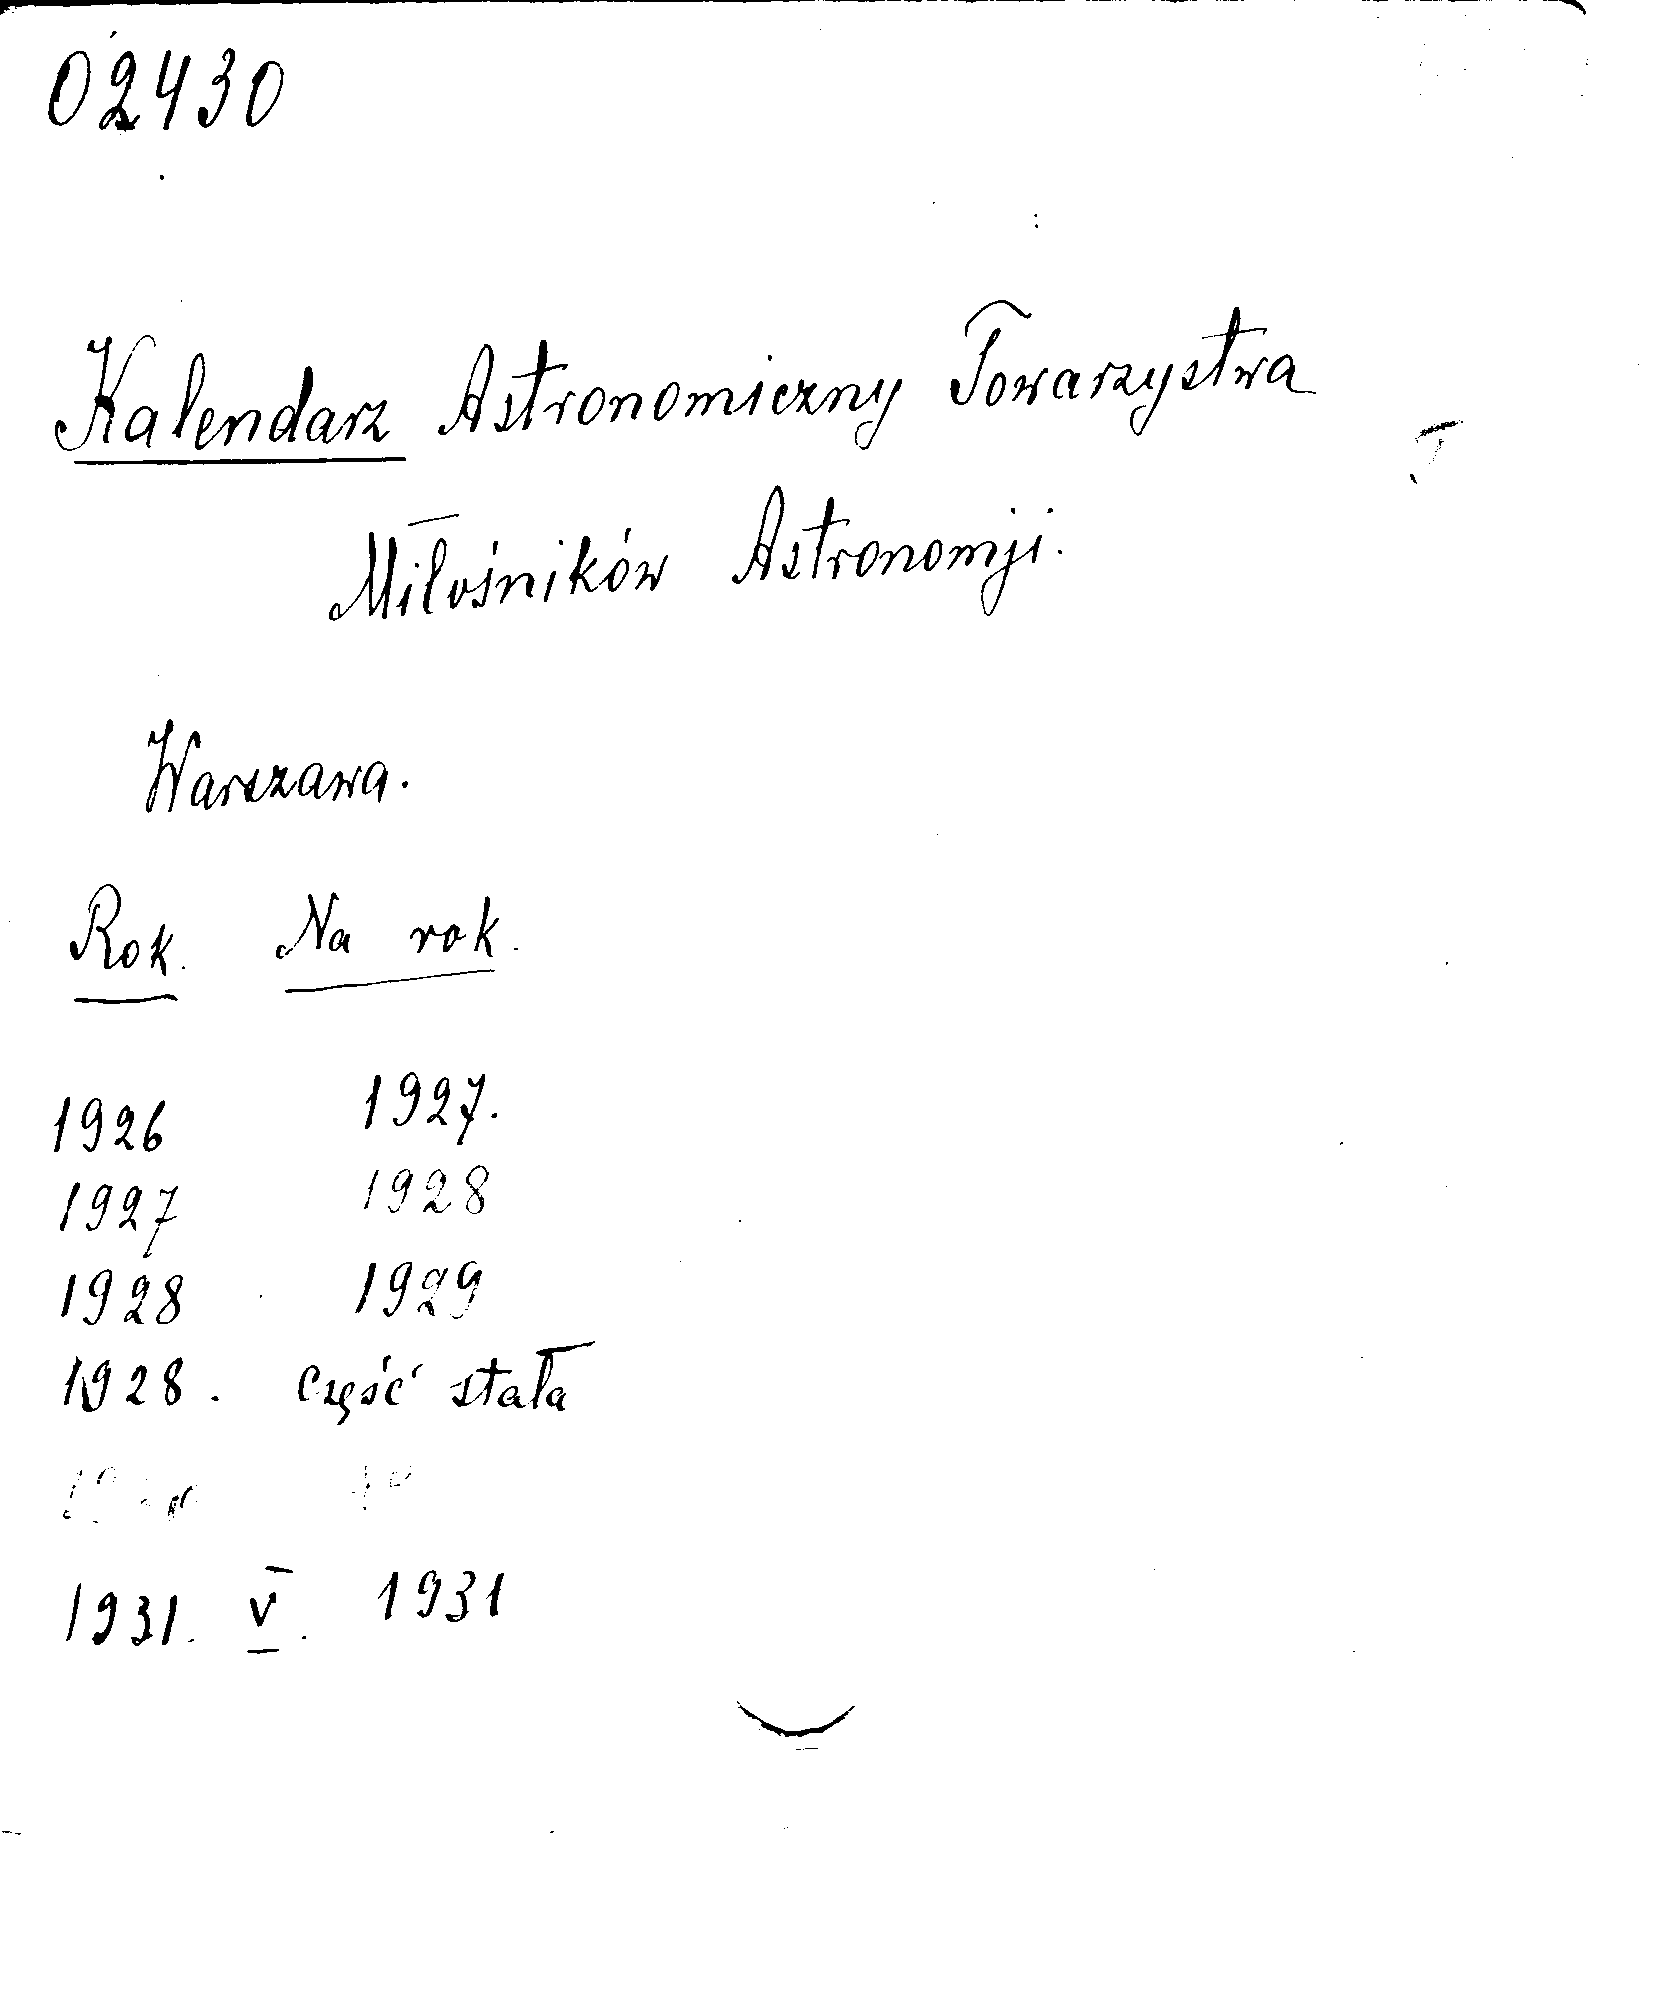 02430
Kalendarz Astronomiczny Towarzystwa
Miłośników Astronomji.
Warszawa.
Rok. Na rok.
1926 1927.
1927 1928
1928 1929
1928. Część stała
1931. V. 1931